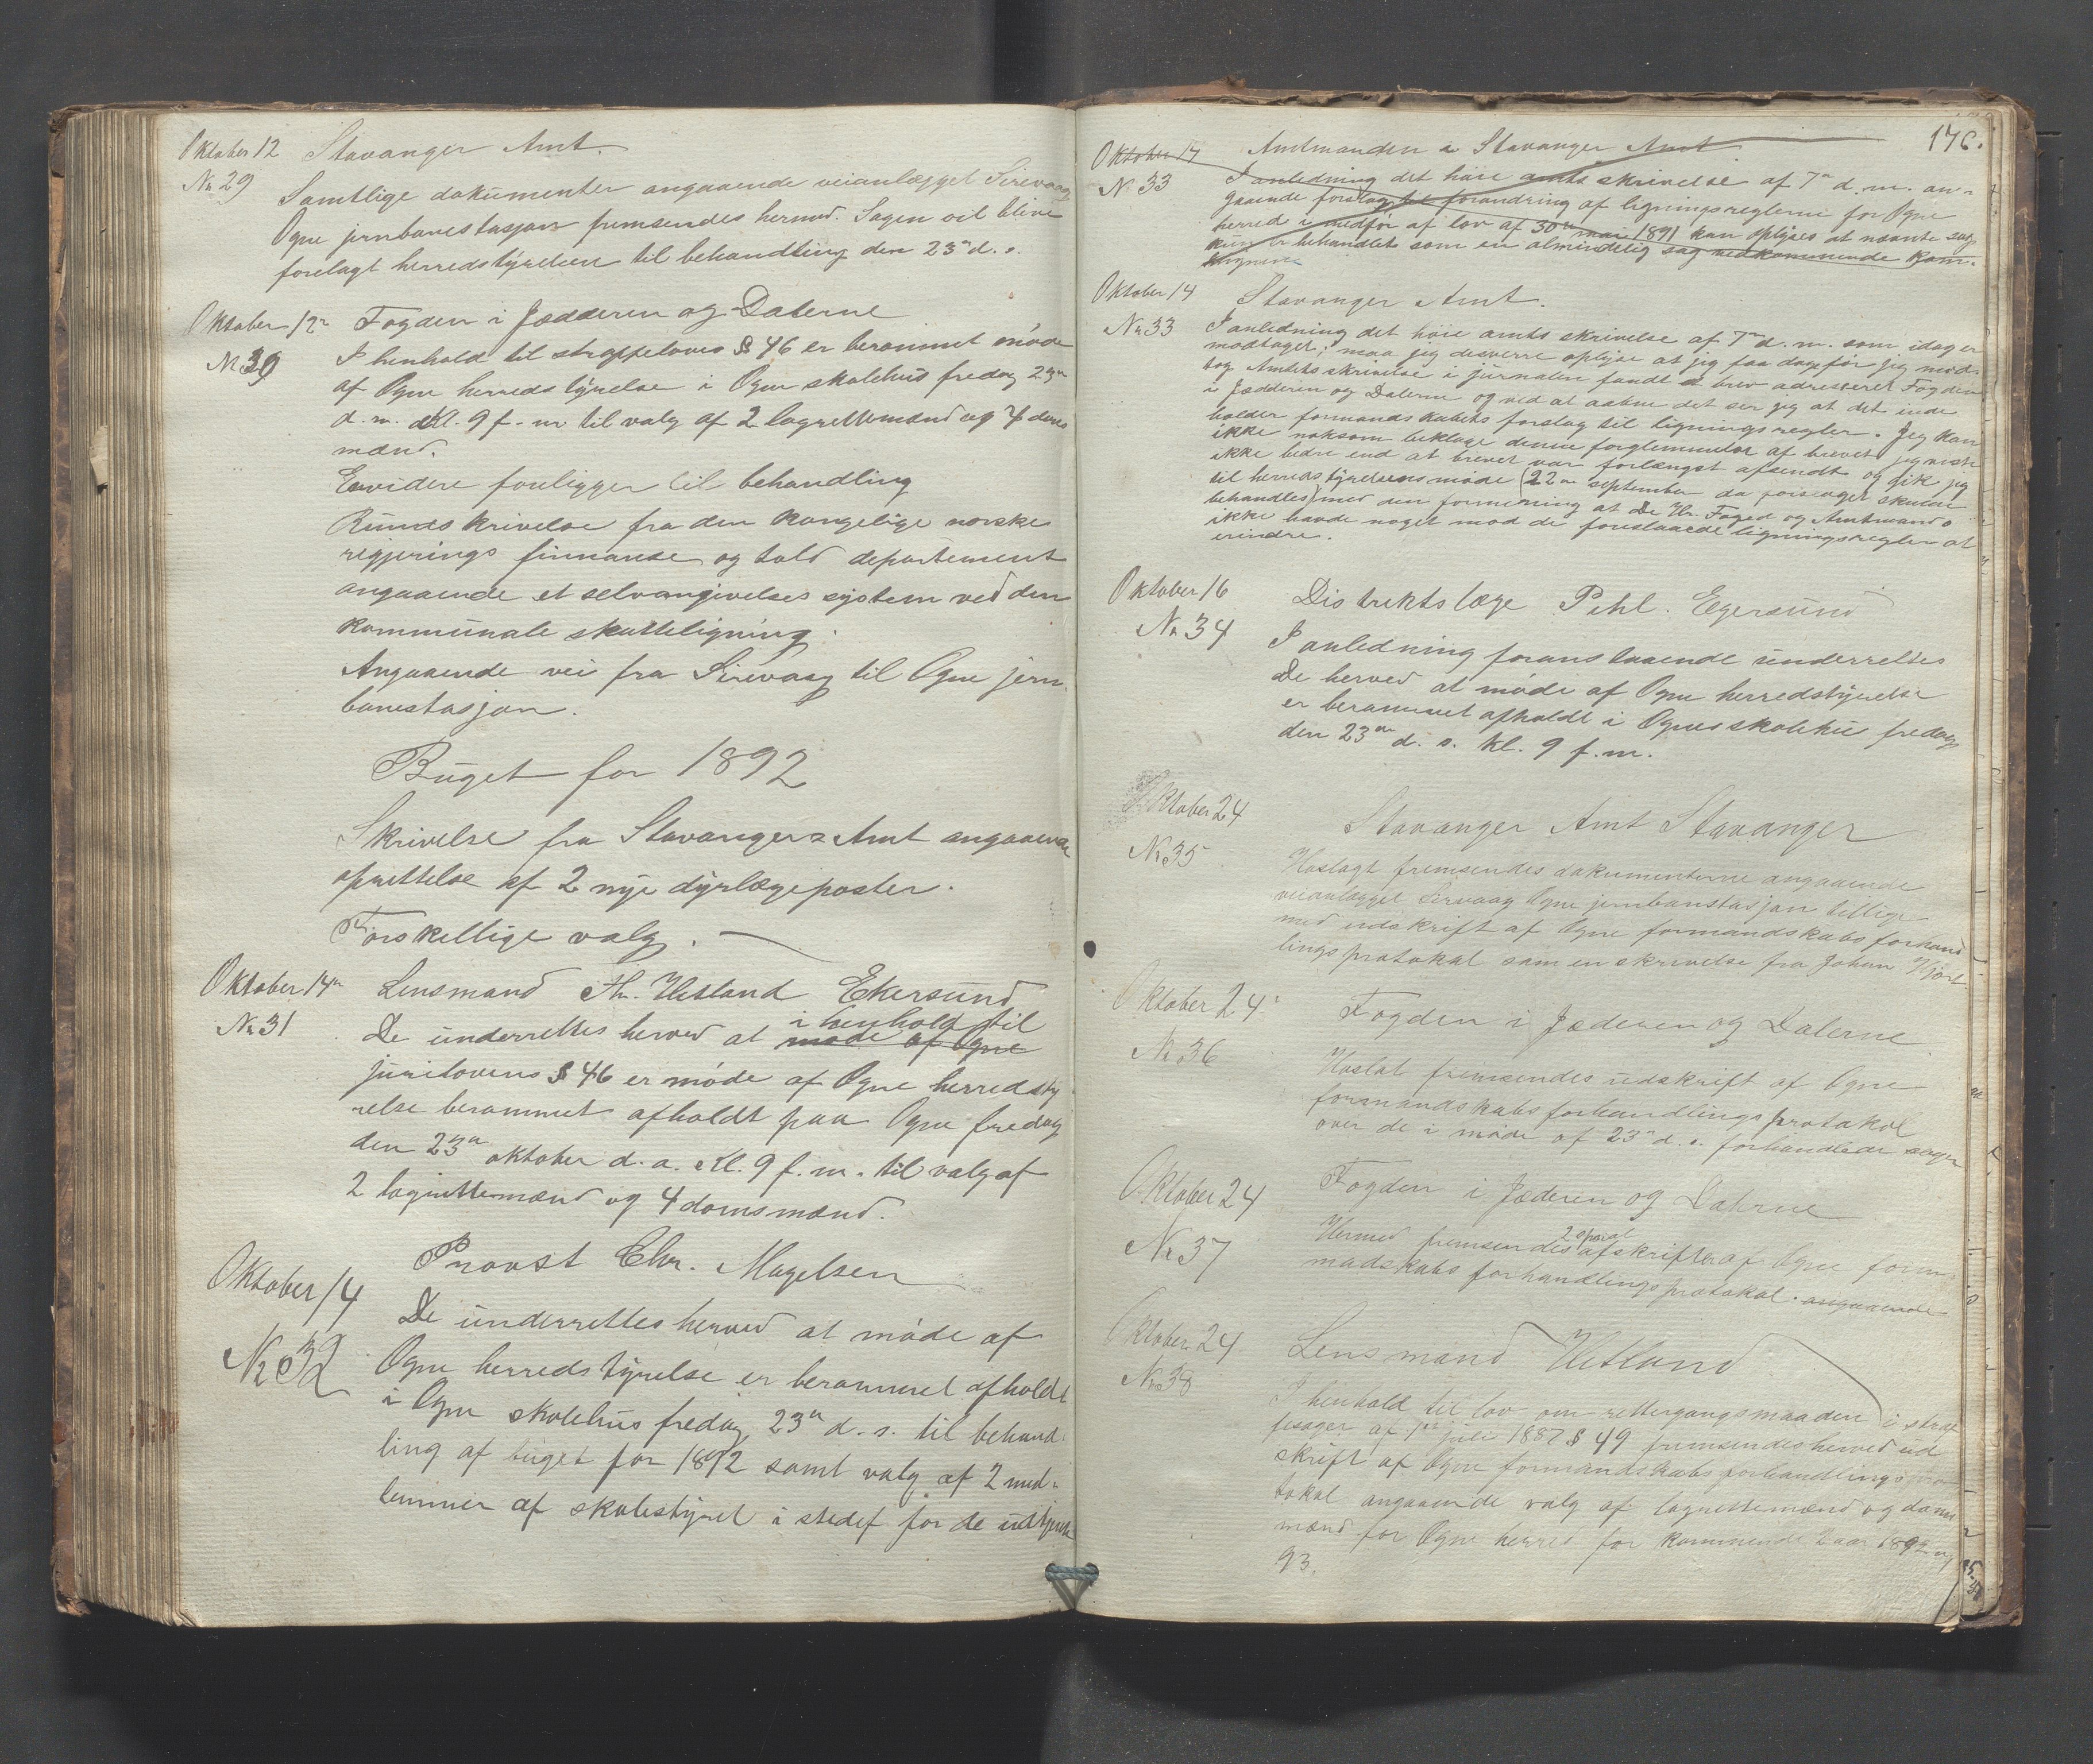 Oktober 12 Stavanger Amt.
No 29 Samtlige dokumenter angaaende veianlægget Sirevaag
Ogne jernbanestasjon fremsendes hermed. Sagen vil blive
forelagt herredstyrelsen til behandling den 23de d. s.
Oktober 12te Fogden i Jædderen og Dalerne
No 30 I henhold til straffelovens § 46 er berammet møde
af Ogne herredstyrelse i Ogne skolehus fredag 23de
d. m. kl. 9 f. m til valg af 2 lagrettemænd og 4 doms
mænd.
Envidere foreligger til behandling
Rundskrivelse fra den kongelige norske
regjerings finnanse og told departement
angaaende et selvangivelses system ved den
kommunale skatteligning.
Angaaende vei fra Sirevaag til Ogne jern
banestasjon.
Buget for 1892
Skrivelse fra Stavanger Amt angaaende
oprettelse af 2 nye dyrlægeposter.
Forskellige valg.
Oktober 14de Lensmand Th. Hetland Ekersund
No 31 De underrettes herved at møde af Ogne i henhold til
jurilovens § 46 er møde af Ogne herredsty
relse berammet afholdt paa Ogne fredag
den 23de oktober d. a. Kl. 9 f. m. til valg af
2 lagrettemænd og 4 domsmænd.
Oktober 14 Provst Chr. Magelsen
No 32 De underrettes herved at møde af
Ogne herredstyrelse er berammet afholdt
i Ogne skolehus fredag 23de d. s. til behand
ling af buget for 1892 samt valg af 2 med-
lemmer af skolestyret i stedet for de
176.
Oktober 14 Amtmanden i Stavanger Amt
No 33 I anledning det høie amts skrivelse af 7de d. m. an-
gaaende forslag til forandring af ligningsreglerne for Ogne
herred i medfør af lov af 30te mai 1891 kan oplyses at nævnte sag
kun er behandlet som en almindelig sag vedkommende kom-
Oktober 14 Stavanger Amt.
No 33 I anledning det høie amts skrivelse af 7de d. m. som idag er
modtaget, maa jeg desverre oplyse at jeg faa dage før jeg mod-
tog Amtets skrivelse i jurnalen fandt et brev adresseret Fogden
i Jædderen og Dalerne og ved at aabne det ser jeg at det inde
holder formandskabets forslag til ligningsregler. Jeg kan
ikke noksom beklage denne forglemmelse af brevet jeg viste
ikke bedre end at brevet var forlængst afsendt og gik jeg
til herredstyrelsens møde (22de september da
behandles) med den formening at De Hr. Foged og Amtmand
ikke havde noget mod de foreslaaede ligningsregler at
erindre.
Oktober 16 Distriktslæge Pihl. Egersund
No 34 I anledning foranstaaende underrettes
De herved at møde af Ogne herredstyrelse
er berammet afholdt i Ognes skolehus fredag
den 23de d. s. kl. 9 f. m.
Oktober 24 Stavanger Amt Stavanger
No 35 Hoslagt fremsendes dokumenterne angaaende
veianlægget Sirevaag Ogne jernbanstasjon tillige
med udskrift af Ogne formandskabs forhand
lingsprotokol som en skrivelse fra Johan Hjort
Oktober 24. Fogden i Jæderen og Dalerne
No 36 Hoslat fremsendes udskrift af Ogne
formandskabs forhandlingsprotokol
over de i møde af 23de d. s. forhandlede sager
Oktober 24 Fogden i Jæderen og Dalerne
No 37 Hermed fremsendes afskrifter af Ogne for
mandskabs forhandlingsprotokol. angaaende
Oktober 24 Lensmand Hetland
No 38 I henhold til lov om rettergangsmaaden i straf
fesager af 1ste juli 1887 § 49 fremsendes herved ud
skrift af Ogne formandskabs forhandlingspro
tokol angaaende valg af lagrettemænd og doms
mænd for Ogne herred for kommende 2 aar 1892 og
93.